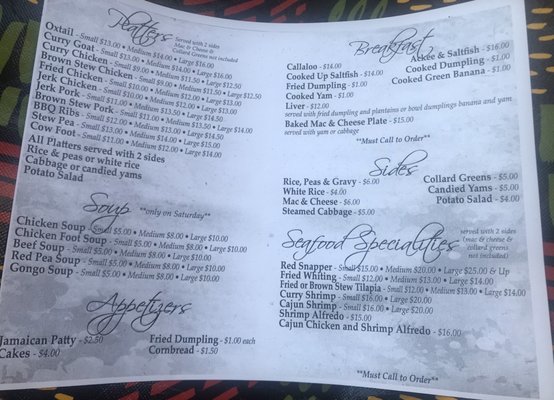 Platters
Served with 2 sides
Mac & Cheese &
Collard Greens not included
Oxtail - Small $13.00 • Medium $14.00 • Large $16.00
Curry Goat - Small $13.00 • Medium $14.00 • Large $16.00
Curry Chicken - Small $9.00 • Medium $11.50 • Large $12.50
Brown Stew Chicken - Small $9.00 • Medium $11.50 • Large $12.50
Fried Chicken - Small $10.00 • Medium $12.00 • Large $13.00
Jerk Chicken - Small $10.00 • Medium $12.00 • Large $13.00
Jerk Pork - Small $11.00 • Medium $13.50 • Large $14.50
Brown Stew Pork - Small $11.00 • Medium $13.50 • Large $14.00
BBQ Ribs - Small $12.00 • Medium $13.00 • Large $14.50
Stew Pea - Small $13.00 • Medium $14.00 • Large $15.00
Cow Foot - Small $11.00 • Medium $12.00 • Large $14.00
All Platters served with 2 sides
Rice & peas or white rice
Cabbage or candied yams
Potato Salad
Soup **only on Saturday**
Chicken Soup - Small $5.00 • Medium $8.00 • Large $10.00
Chicken Foot Soup - Small $5.00 • Medium $8.00 • Large $10.00
Beef Soup - Small $5.00 • Medium $8.00 • Large $10.00
Red Pea Soup - Small $5.00 • Medium $8.00 • Large $10.00
Gongo Soup - Small $5.00 • Medium $8.00 • Large $10.00
Appetizers
Jamaican Patty - $2.50
Cakes - $4.00
Fried Dumpling - $1.00 each
Cornbread - $1.50
Breakfast
Callaloo - $14.00
Cooked Up Saltfish - $14.00
Fried Dumpling - $1.00
Cooked Yam - $1.00
Liver - $12.00
Ackee & Saltfish - $16.00
Cooked Dumpling - $1.00
Cooked Green Banana - $1.00
served with fried dumpling and plantains or bowl dumplings banana and yam
Baked Mac & Cheese Plate - $15.00
served with yam or cabbage
**Must Call to Order**
Sides
Rice, Peas & Gravy - $6.00
White Rice - $4.00
Mac & Cheese - $6.00
Steamed Cabbage - $5.00
Collard Greens - $5.00
Candied Yams - $5.00
Potato Salad - $4.00
Seafood Specialities
served with 2 sides
(mac & cheese &
collard greens
not included)
Red Snapper - Small $15.00 • Medium $20.00 • Large $25.00 & Up
Fried Whiting - Small $12.00 • Medium $13.00 • Large $14.00
Fried or Brown Stew Tilapia - Small $12.00 • Medium $13.00 • Large $14.00
Curry Shrimp - Small $16.00 • Large $20.00
Cajun Shrimp - Small $16.00 • Large $20.00
Shrimp Alfredo - $15.00
Cajun Chicken and Shrimp Alfredo - $16.00
**Must Call to Order**